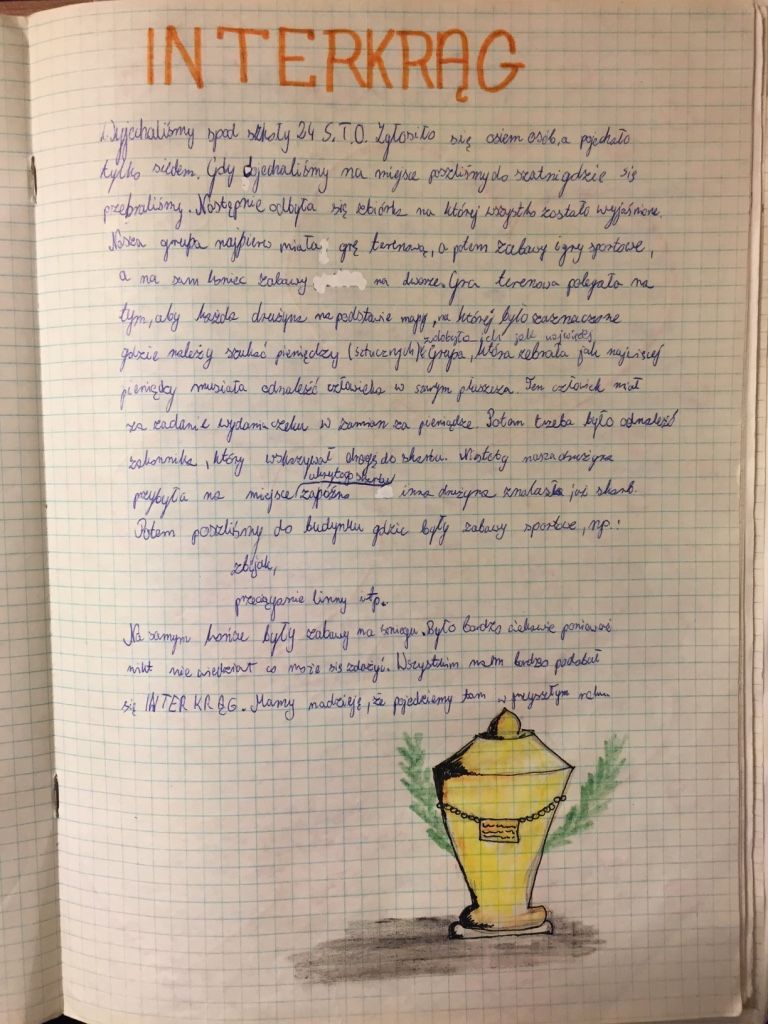 INTERKRĄG
Wyjechaliśmy spod szkoły 24 S.T.O. Zgłosiło się osiem osób, a pojechało
tylko siedem. Gdy dojechaliśmy na miejsce poszliśmy do szatni gdzie się
przebraliśmy. Następnie odbyła się zbiórka na której wszystko zostało wyjaśnione.
Nasza grupa najpierw miała grę terenową, a potem zabawy i gry sportowe,
a na sam koniec zabawy na dworze. Gra terenowa polegała na
tym, aby każda drużyna na podstawie mapy, na której było zaznaczone
zdobyła ich jak najwięcej
gdzie należy szukać pieniędzy (sztucznych). Grupa, która zebrała jak najwięcej
pieniędzy musiała odnaleść człowieka w szarym płaszczu. Ten człowiek miał
za zadanie wydanie czeku w zamian za pieniądze. Potem trzeba było odnaleść
zakonnika, który wskazywał drogę do skarbu. Niestety nasza drużyna
ukrytego skarbu
przybyła na miejsce zapóźno inna drużyna znalazła już skarb.
Potem poszliśmy do budynku gdzie były zabawy sportowe, np.:
zbijak,
przeciąganie linny itp.
Na samym końcu były zabawy na śniegu. Było bardzo ciekawie ponieważ
nikt nie wiedział co może się zdażyć. Wszystkim nam bardzo podobał
się INTERKRĄG. Mamy nadzieję, że pojedziemy tam w przyszłym roku.